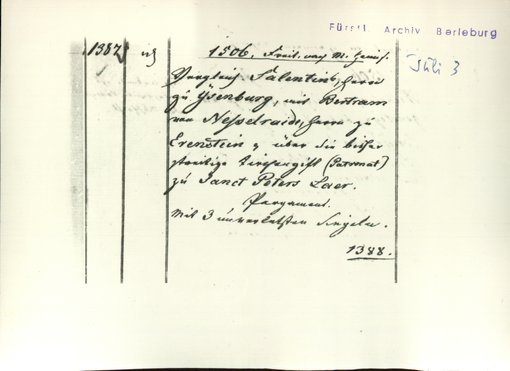 Fürstl. Archiv Berleburg
Juli 3
1387
1506. Freit. nach M.
Vergleich Salentins, Herrn
zu Ysenburg, mit Bertram
von Nesselraide, Herrn zu
Erenstein, über die bisher
streitige Kirchengift (Patronat)
zu Sanct Peters Laer.
Pergament.
Mit 3 unverletzten Siegeln.
1388.